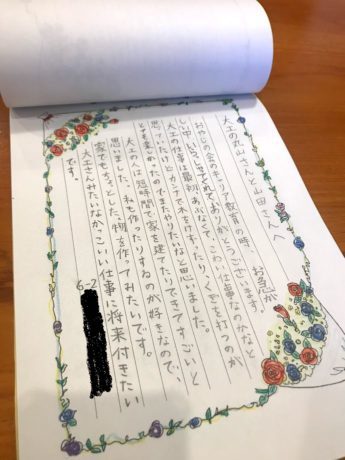 大工の丸山さんと山田さんへ
おやじの会のキャリア教育の時、お急が
しい中いらしてくれてありがとうございます。
大工の仕事は最初あぶなくて、こわい仕事なのかなと
思っていたけど、カンナで木をけずったり、くぎを打つのが
とても楽しかったのでまたやりたいなと思いました。
大工の人は短時間で家を建てたりできてすごいと
思いました。私も作ったりするのが好きなので、
家でもちょっとした物を作ってみたいです。
大工さんみたいなかっこいい仕事に将来付きたい
です。
6-2